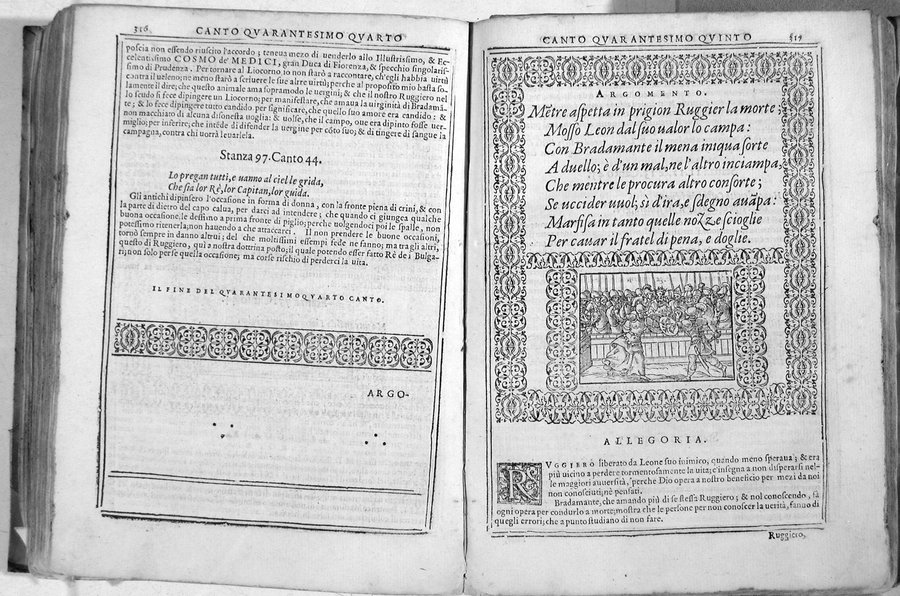 316 CANTO QVARANTESIMO QVARTO
poscia non essendo riuscito l'accordo; teneua mezo di uenderlo allo Illustrissimo, & Ec-
celentissimo COSMO de' MEDICI, gran Duca di Fiorenza, & specchio singolaris-
simo di Prudenza. Per tornare al Liocorno io non starò a raccontare, ch'egli habbia uirtù
contra il ueleno; ne meno starò a scriuere le sue altre uirtù; perche al proposito mio basta so-
lamente il dire; che questo animale ama sopramodo le uergini; & che il nostro Ruggiero nel
lo scudo si fece dipingere un Liocorno; per manifestare, che amaua la uirginità di Bradamā-
te; & lo fece dipingere tutto candido per significare, che quello suo amore era candido: &
non macchiato di alcuna disonesta uoglia: & uolse, che il campo, oue era dipinto fosse uer-
miglio; per inferire, che intēde di difender la uergine per cōto suo; & di tingere di sangue la
campagna, contra chi uorrà leuarlela.
Stanza 97. Canto 44.
Lo pregan tutti, e uanno al ciel le grida,
Che sia lor Rè, lor Capitan, lor guida.
Gli antichi dipinsero l'occasione in forma di donna, con la fronte piena di crini, & con
la parte di dietro del capo calua, per darci ad intendere; che quando ci giungea qualche
buona occasione, le dessimo a prima fronte di piglio; perche uolgendoci poi le spalle, non
potessimo ritenerla; non hauendo a che attaccarci. Il non prendere le buone occasioni,
torno sempre in danno altrui; del che moltissimi essempi fede ne fanno; ma tra gli altri,
questo di Ruggiero, qui a nostra dottrina posto; il quale potendo esser fatto Rè de i Bulga-
ri; non solo perse quella occasione; ma corse rischio di perderci la uita.
IL FINE DEL QVARANTESIMOQVARTO CANTO.
ARGO-
CANTO QVARANTESIMO QVINTO
ARGOMENTO.
Mētre aspetta in prigion Ruggier la morte;
Mosso Leon dal suo ualor lo campa:
Con Bradamante il mena iniqua sorte
A duello; è d'un mal, ne l'altro inciampa,
Che mentre le procura altro consorte;
Se uccider uuol, sì d'ira, e sdegno auāpa:
Marfisa in tanto quelle nozze scioglie
Per cauar il fratel di pena, e doglie.
ALLEGORIA.
RVGGIERO liberato da Leone suo inimico, quando meno speraua; & era
più uicino a perdere tormentosamente la uita; c'insegna a non disperarsi nel-
le maggiori auuersità, perche Dio opera a nostro beneficio per mezi da noi
non conosciuti, nè pensati.
Bradamante, che amando più di se stessa Ruggiero; & nol conoscendo, fà
ogni opera per condurlo a morte; mostra che le persone per non conoscer la uerità, fanno di
quegli errori; che a punto studiano di non fare.
Ruggiero,